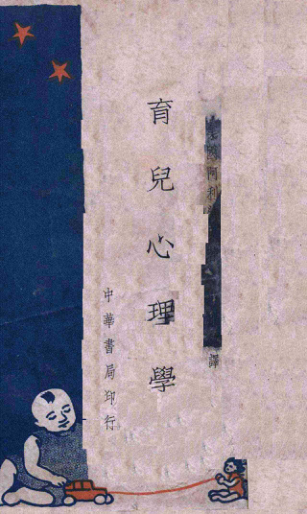 阿利 譯
育兒心理學
中華書局印行